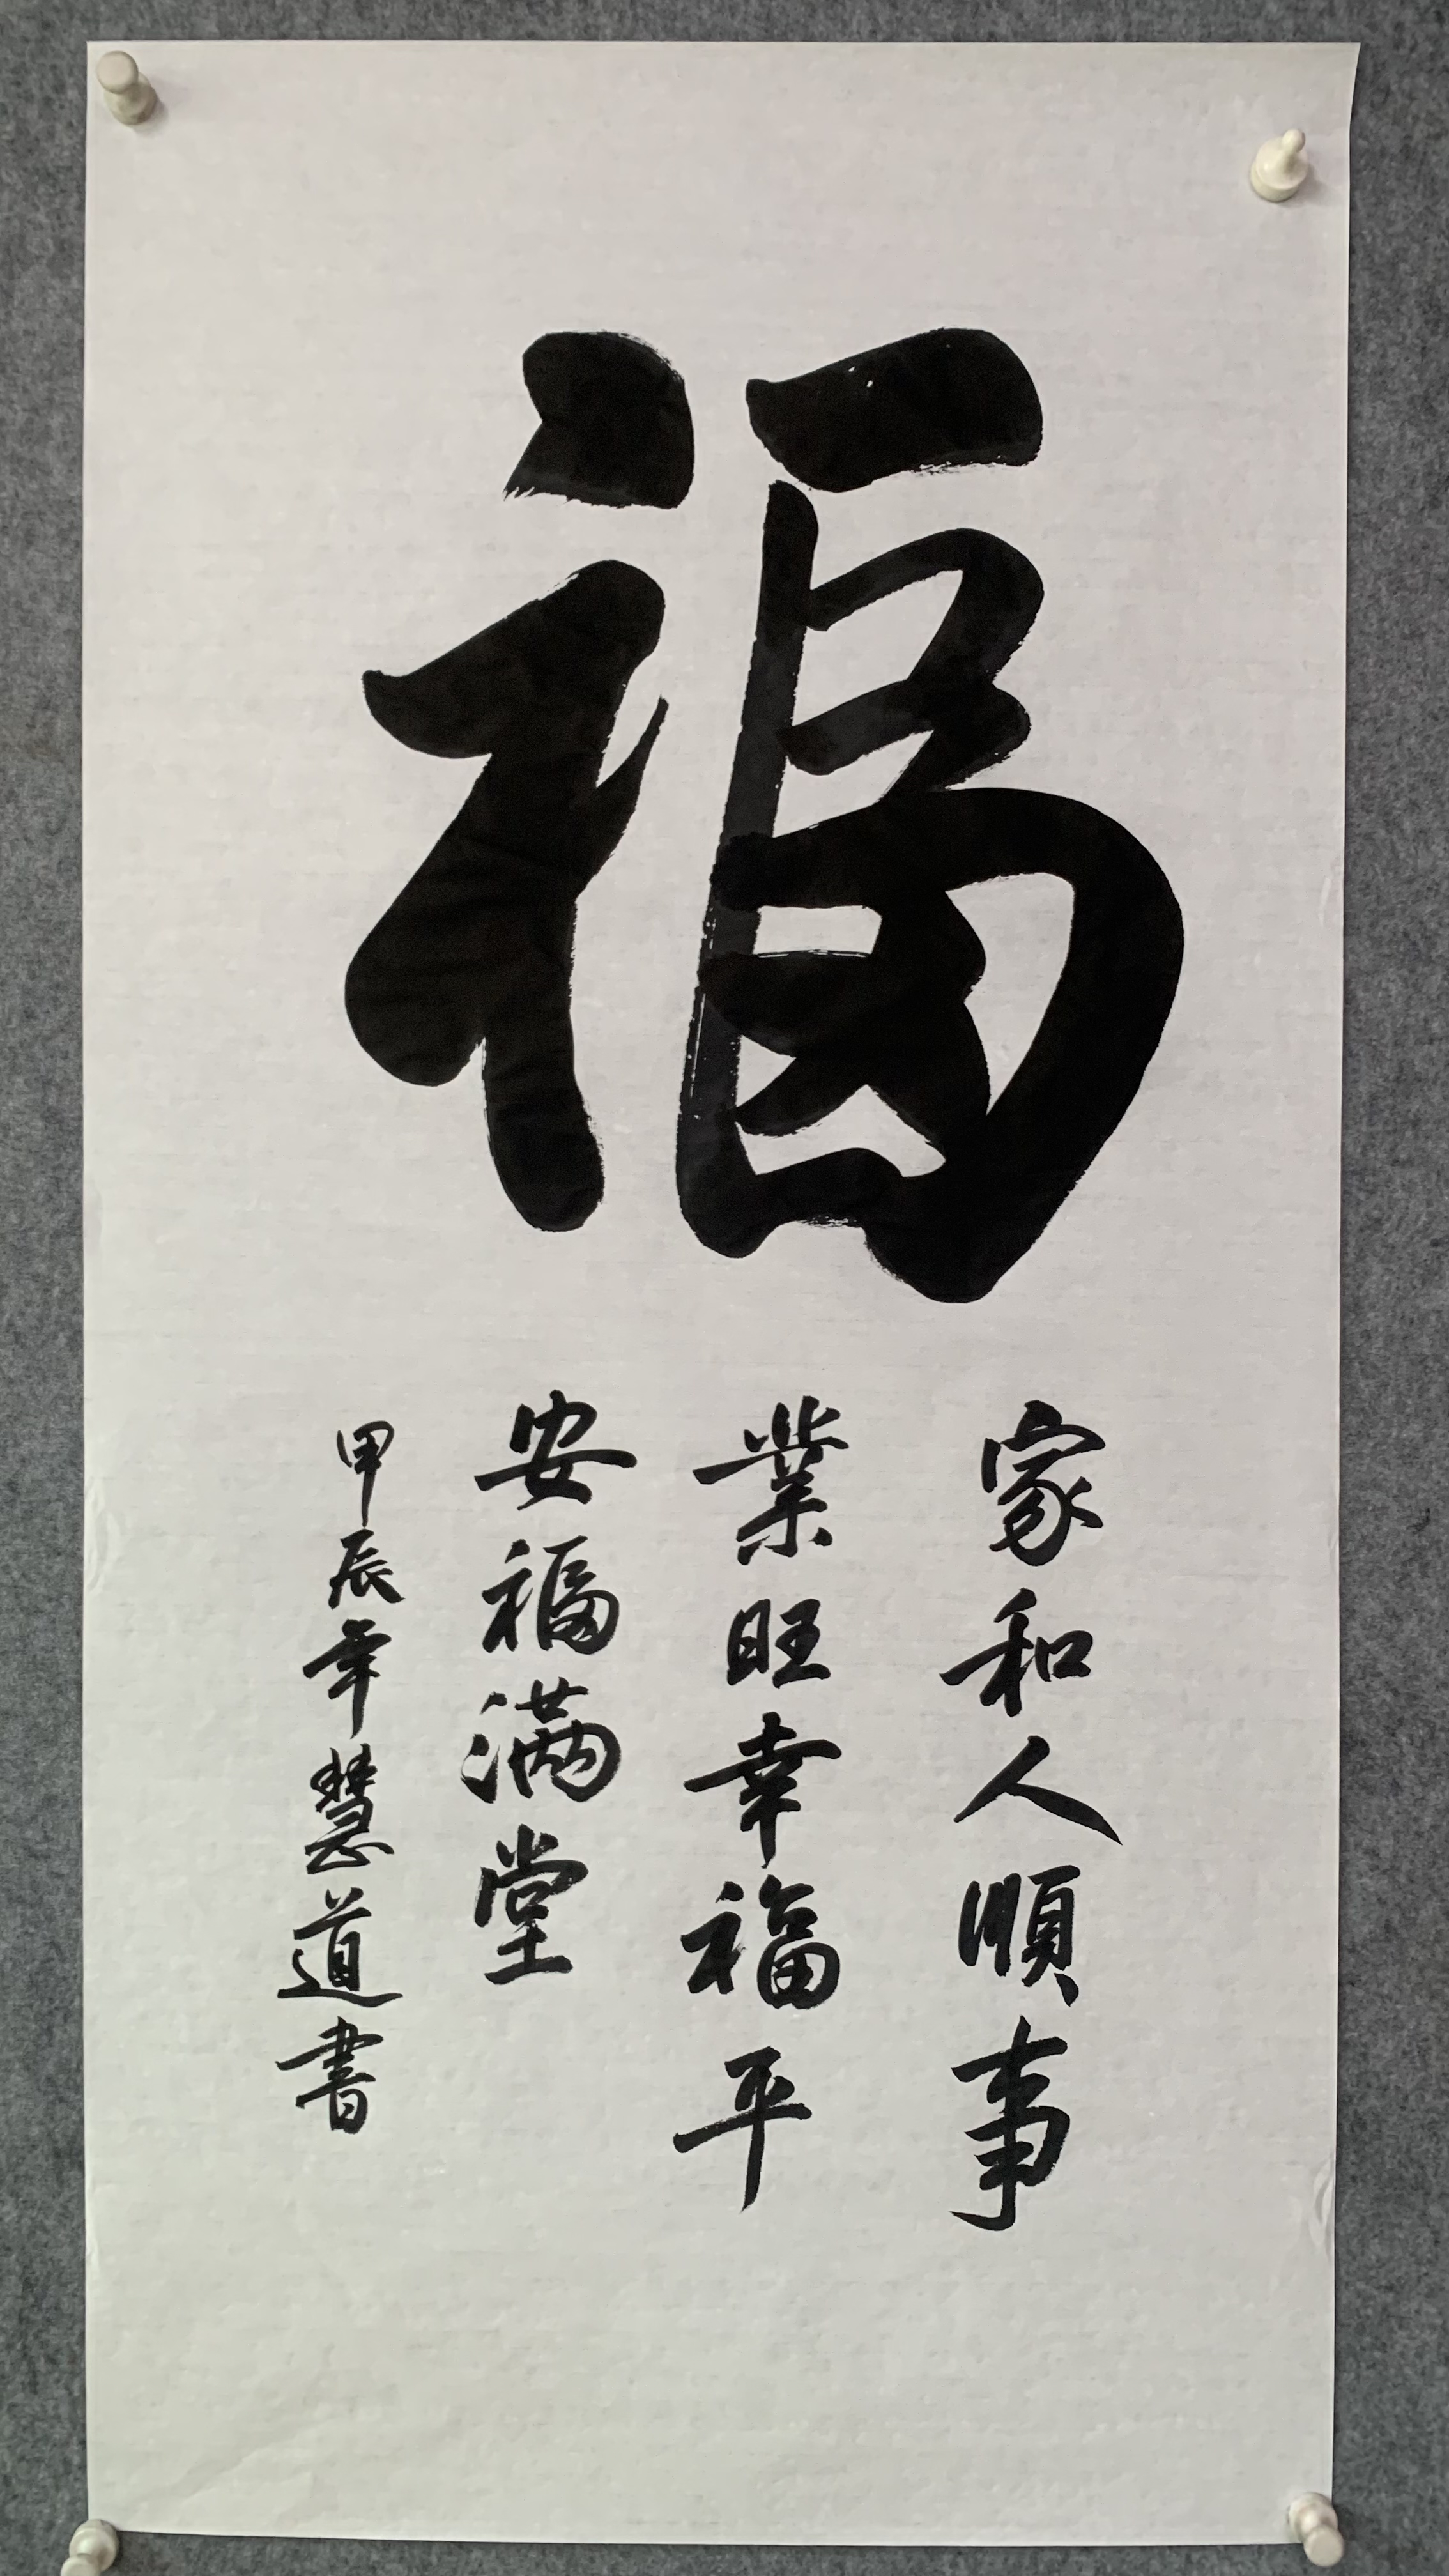 福
家和人順事
業旺幸福平
安福满堂
甲辰年慧道書